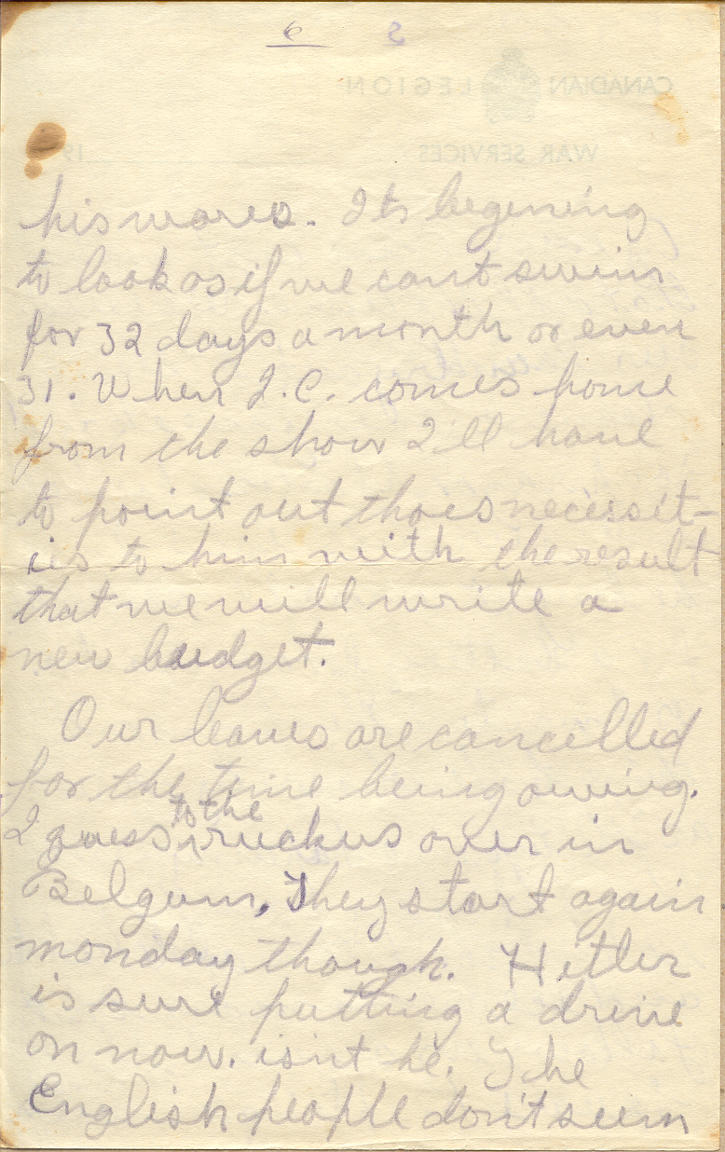 6 2
CANADIAN LEGION
WAR SERVICES 19
his wares. Its begening
to look as if we cant swim
for 32 days a month or even
31. When J.C. comes home
from the show I'll have
to point out thoes necessit-
ies to him with the result
that we will write a
new budget.
Our leaves are cancelled
for the time being owing.
I guess to the ruckus over in
Belgum, They start again
monday though. Hitler
is sure putting a drive
on now. isnt he. The
English people don't seem